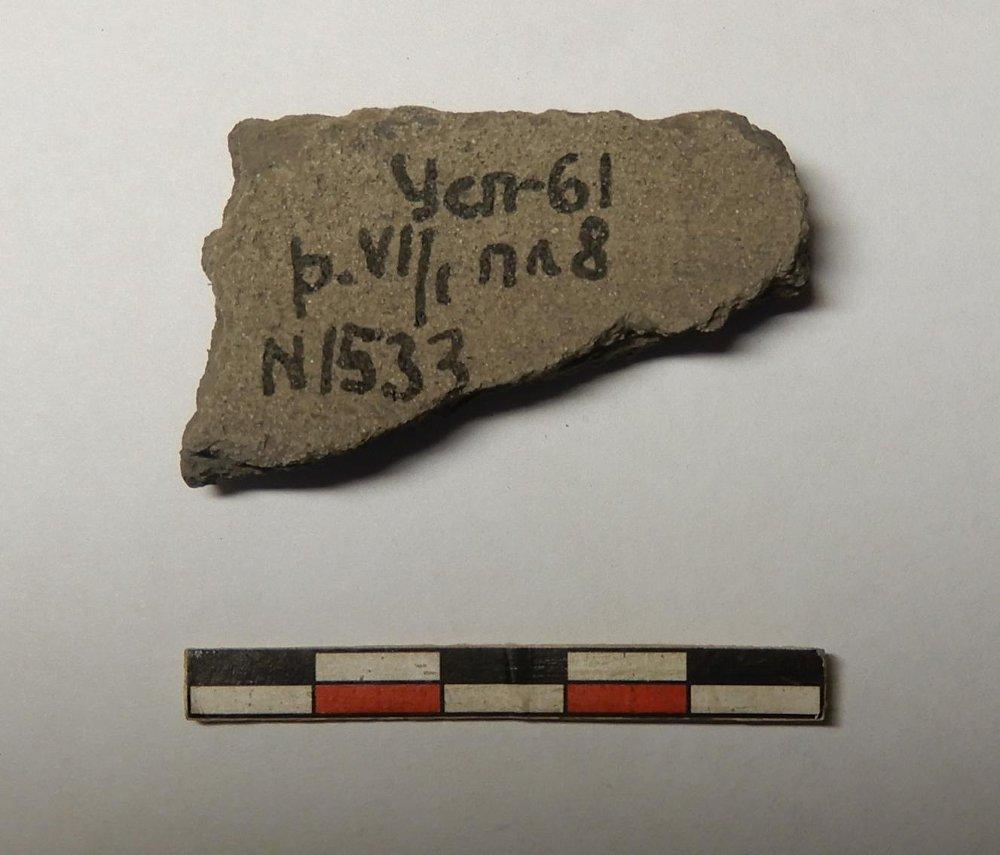 Усп-61
р. VI/1 пл 8
N1533